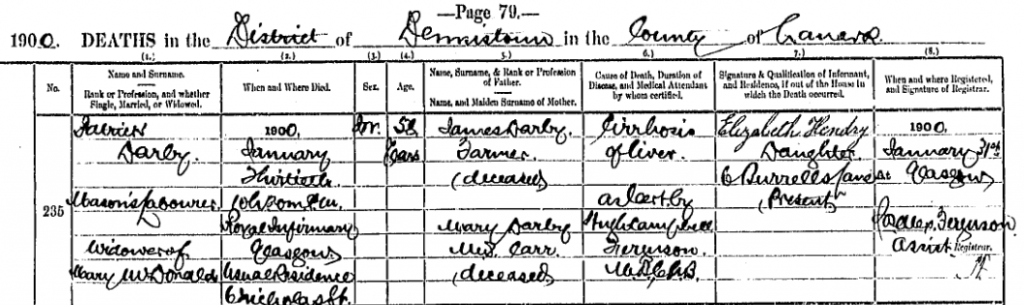 —Page 79.—
1900. DEATHS in the District of Dennistoun in the County of Lanark
(1.) (2.) (3.) (4.) 5.) 6.) 7.) (8.)
No.
Name and Surname.
Rank or Profession, and whether Single, Married, or Widowed.
When and Where Died.
Sex.
Age.
Name, Surname, & Rank or Profession of Father.
Name, and Maiden Surname of Mother.
Cause of Death, Duration of Disease, and Medical Attendant by whom certified.
Signature & Qualification of Informant, and Residence, if out of the House in which the Death occurred.
When and where Registered, and Signature of Registrar.
235
Patrick
Darby.
Mason's Labourer
Widower of
Mary McDonald
1900
January
Thirtieth
P.M.
Royal Infirmary
Glasgow
Usual Residence
6 Nicholas St.
M.
58
Years
James Darby.
Farmer
(deceased)
Mary Darby
M.S. Carr
(deceased)
Cirrhosis
of liver
as cert by
Hugh Campbell
Ferguson
M.B.C.M.B.
Elizabeth Hendry
Daughter
6 Burrells Lane
(Present)
1900
January 31st
at Glasgow
Ferguson
Assist Registrar.